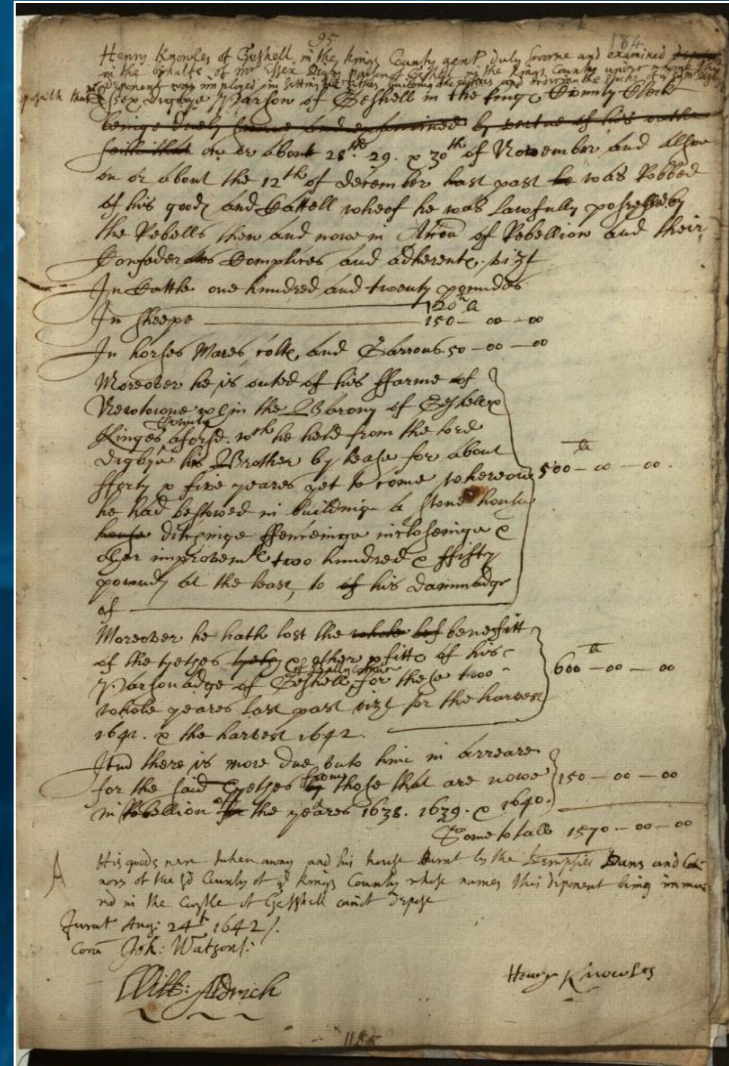 95
184
Henry Knowles of Geshell in the kings County gent duly sworne and examined
in the behalfe of mr Essex Digby parson of Geshell in the Kings County
deposeth that Essex digbye Parson of Geshell in the Kings County Clerk
beinge duely sworne and examined by vertue of his oathe
saith that on or about 28th. 29. & 30th of November and allsoe
on or about the 12th of december last past he was Robbed
of his goods and Cattell wheof he was lawfully possessed by
the Rebells then and nowe in of Rebellion and their
Confederates Complices and adherents. vizt
In Cattle one hundred and twenty poundes
120 li
In sheepe 150 - 00 - 00
In horses Mares, colts, and Garrons 50 - 00 - 00
Moreover he is outed of his ffarme of
Newtowne in the Barony of Geshell &
Kinges County aforsd. wch he held from the lord
digbye his Brother by lease for about
fforty & five yeares yet to come whereon 500 li - 00 - 00.
he had bestowed in buildinge a stone house
house ditchinge ffenceinge inclosinge &
other improvemts two hundred & ffifty
pounds at the least, to of his dammadge
of
Moreover he hath lost the whole benefitt
of the tythes & other pfitts of his
Parsonadge of Geshell for these two 600 li - 00 - 00
whole yeares last past vizt for the harvest
1641. & the harvest 1642.
And there is more due unto him in arreare
for the said tythes from those that are nowe 150 - 00 - 00
in Rebellion for the yeares 1638. 1639. & 1640.
Some totall 1570 - 00 - 00
A His goods were taken away and his house Burnt by the Dempsies Duns and Con
nors of the sd County of ye Kings County whose names this deponent being immu
red in the Castle of Geshell canot depose
Jurat Aug: 24th 1642
Cora Joh: Watson:
Will: Aldrich
Henry Knowles